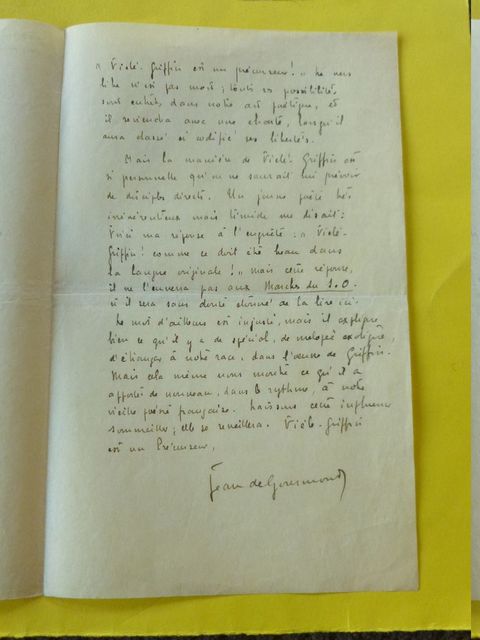 « Vielé-Griffin est un précurseur ! » Le vers
libre n'est pas mort ; toutes ses possibilités
sont entrées dans notre art poétique, et
il reviendra avec une clarté, lorsqu'il
aura classé et codifié ses libertés.
Mais la manière de Vielé-Griffin est
si personnelle qu'on ne saurait lui prévoir
de disciples directs. Un jeune poète très
irrévérencieux mais timide me disait :
Voici ma réponse à l'enquête : « Vielé-
Griffin ! comme ce doit être beau dans
la langue originale ! » mais cette réponse,
il ne l'enverra pas aux Marches du S.O.
et il sera sans doute étonné de la lire ici.
Le mot d'ailleurs est injuste, mais il explique
bien ce qu'il y a de spécial, de mélopée exotique,
d'étranger à notre race, dans l'œuvre de Griffin.
Mais cela même nous montre ce qu'il a
apporté de nouveau, dans le rythme, à notre
vieille poésie française. Laissons cette influence
sommeiller ; elle se réveillera. Vielé-Griffin
est un Précurseur.
Jean de Gourmont